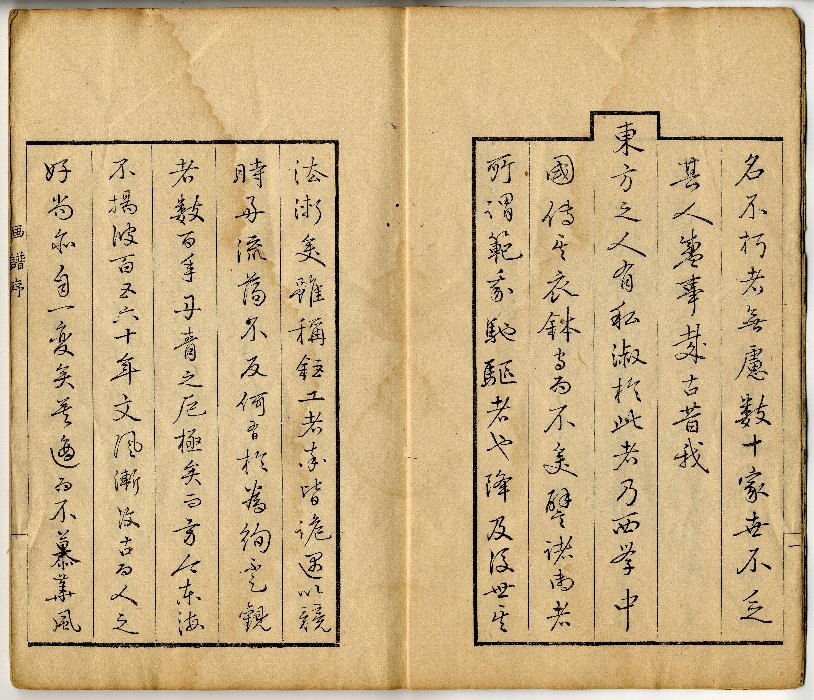 名不朽者無慮数十家世不乏
其人盛事載古昔我
東方之人有私淑於此者乃西学中
國傳其衣鉢守而不失譬諸南者
所謂範我馳驅者也降及後世其
法漸失雖稱鉅工者率皆詭遇以競
時好流蕩不反何有於為絢
者数百年丹青之厄極矣而方今東海
不揚波百五六十年文風漸復古而人之
好尚亦自一変矣於不慕華風
画譜序
一